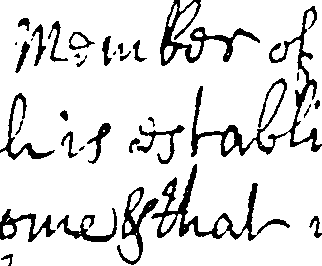 Member of
his establi
ome & that